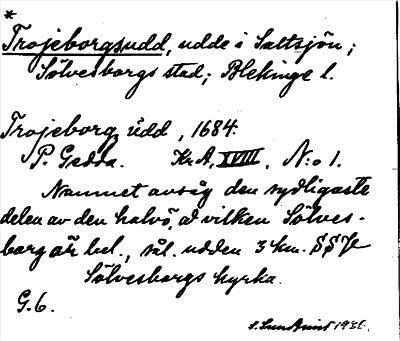 *
Trojeborgsudd, udde i Saltsjön;
Sölvesborgs stad; Blekinge l.
Trojeborg udd, 1684.
P. Gedda. Kr. A, XVIII, N:o 1.
Namnet avsåg den sydligaste
delen av den halvö, å vilken Sölves-
borg är bel., sål. udden 3 km. SSV
Sölvesborgs kyrka.
G. 6.
1936.